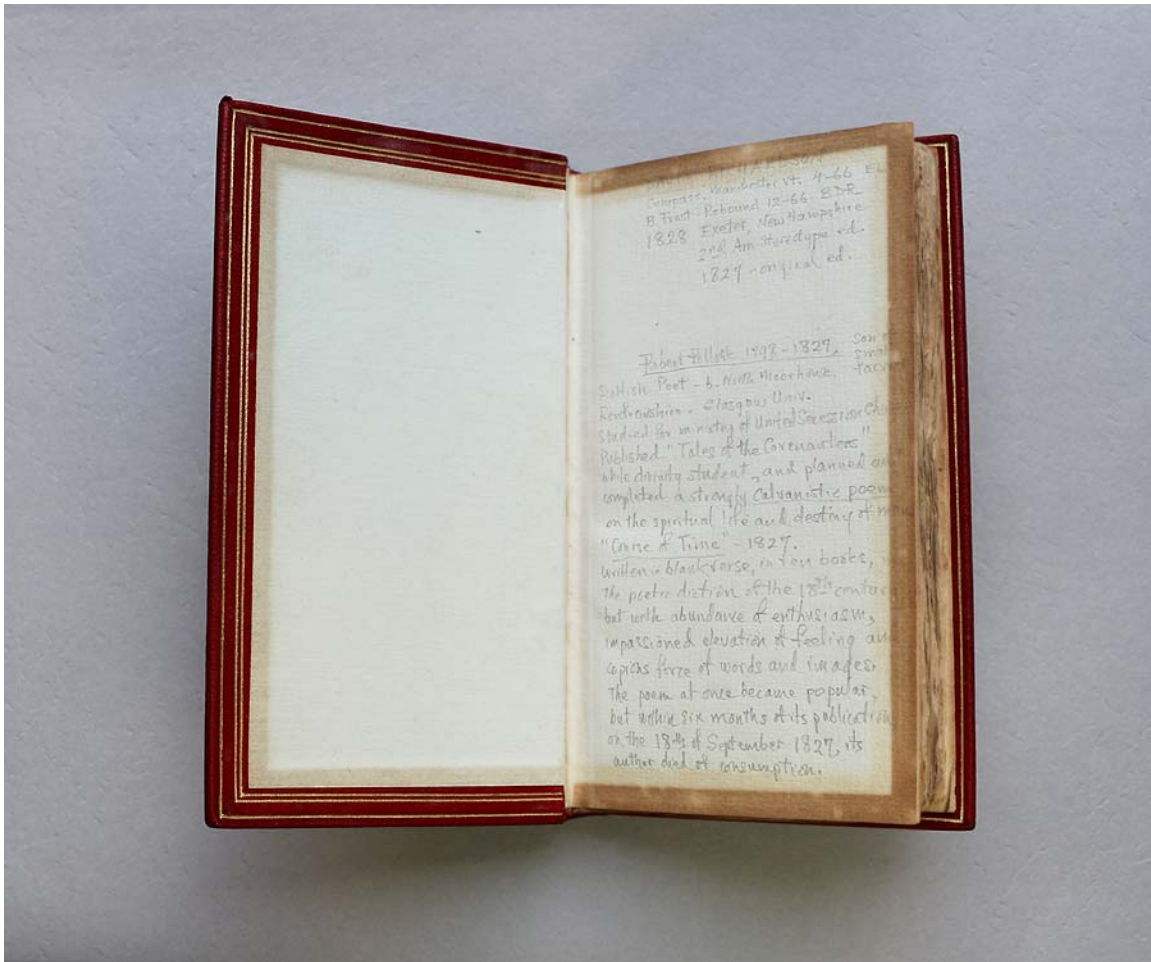 Compass. Manchester Vt. 4-66 EL
B. Frost Rebound 12-66 BDR
1828 Exeter, New Hampshire
2nd Am Stereotype ed.
1827 - original ed.
Robert Pollok 1798-1827, Son
Scottish Poet - b. North Moorhouse, small
Renfrewshire. Glasgow Univ. farm
Studied for ministry of United Secession Chu
Published "Tales of the Covenanters"
while divinity student, and planned an
completed a strongly Calvanistic poem
on the spiritual life and destiny of m
"Course of Time" - 1827.
Written in blank verse, in ten books,
the poetic diction of the 18th century
but with abundance of enthusiasm,
impassioned elevation of feeling and
copious force of words and images.
The poem at once became popular,
but within six months of its publication
on the 18th of September 1827, its
author died of consumption.